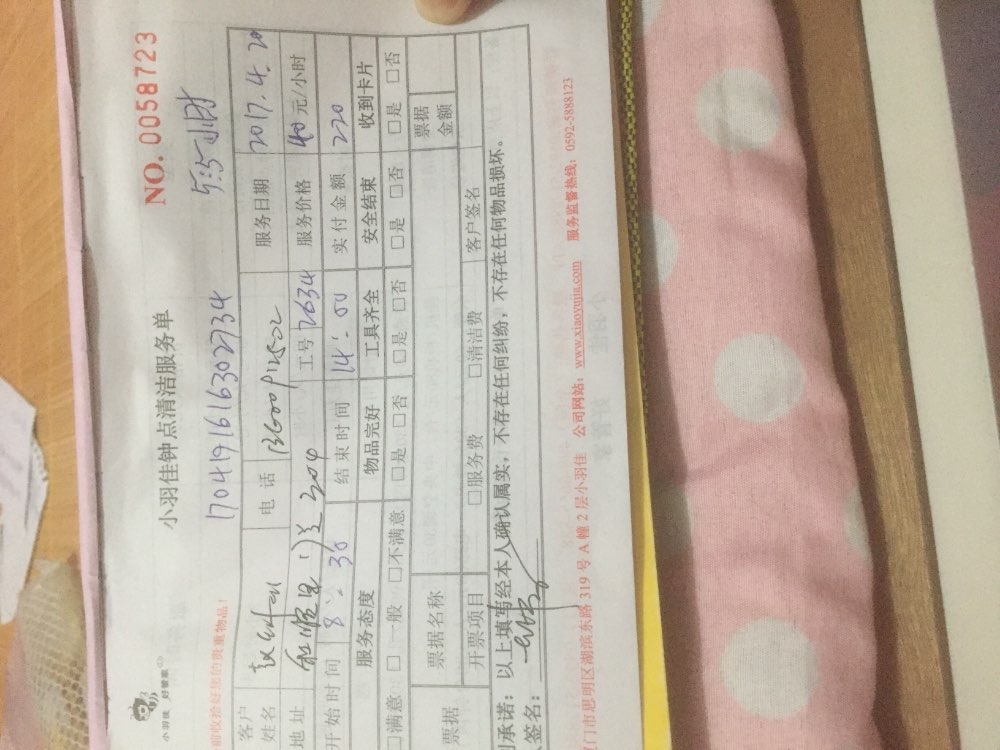 小羽佳 好管家
小羽佳钟点清洁服务单
NO. 0058723
1704191616302734
5.5小时
前收拾好您的贵重物品!
客户姓名 电话 服务日期 2017.4.20
地址 304 工号 2634 服务价格 40元/小时
开始时间 8:30 结束时间 14:00 实付金额 220
服务态度 物品完好 工具齐全 安全结束 收到卡片
□满意 □一般 □不满意 □是 □否 □是 □否 □是 □否 □是 □否
票据 票据名称 票据金额
开票项目 □服务费 □清洁费 客户签名
承诺:以上填写经本人确认属实,不存在任何纠纷,不存在任何物品损坏。
签名:
门市思明区湖滨东路319号A幢2层小羽佳 公司网站:www.xiaoyujia.com 服务监督热线:0592-5888123